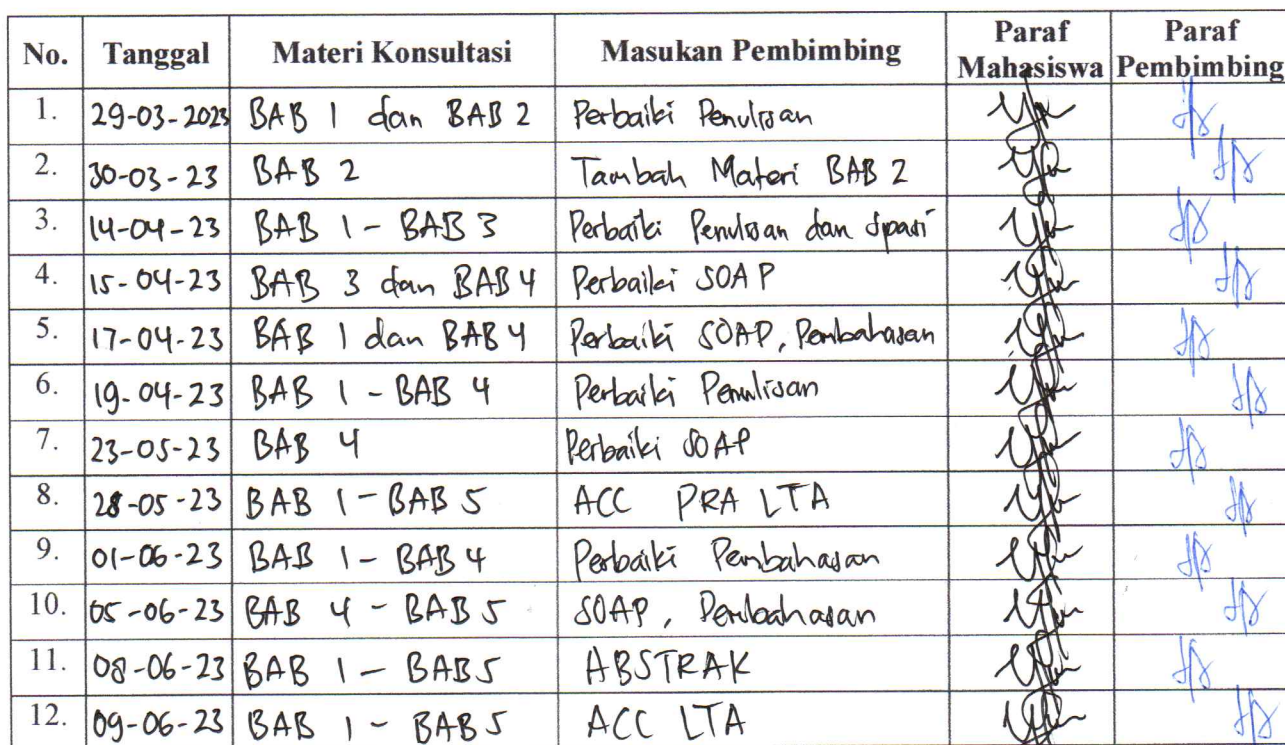 No. Tanggal Materi Konsultasi Masukan Pembimbing Paraf Mahasiswa Paraf Pembimbing
1. 29-03-2023 BAB 1 dan BAB 2 Perbaiki Penulisan
2. 30-03-23 BAB 2 Tambah Materi BAB 2
3. 14-04-23 BAB 1 - BAB 3 Perbaiki Penulisan dan spasi
4. 15-04-23 BAB 3 dan BAB 4 Perbaiki SOAP
5. 17-04-23 BAB 1 dan BAB 4 Perbaiki SOAP, Pembahasan
6. 19-04-23 BAB 1 - BAB 4 Perbaiki Penulisan
7. 23-05-23 BAB 4 Perbaiki SOAP
8. 28-05-23 BAB 1 - BAB 5 ACC PRA LTA
9. 01-06-23 BAB 1 - BAB 4 Perbaiki Pembahasan
10. 05-06-23 BAB 4 - BAB 5 SOAP, Pembahasan
11. 08-06-23 BAB 1 - BAB 5 ABSTRAK
12. 09-06-23 BAB 1 - BAB 5 ACC LTA